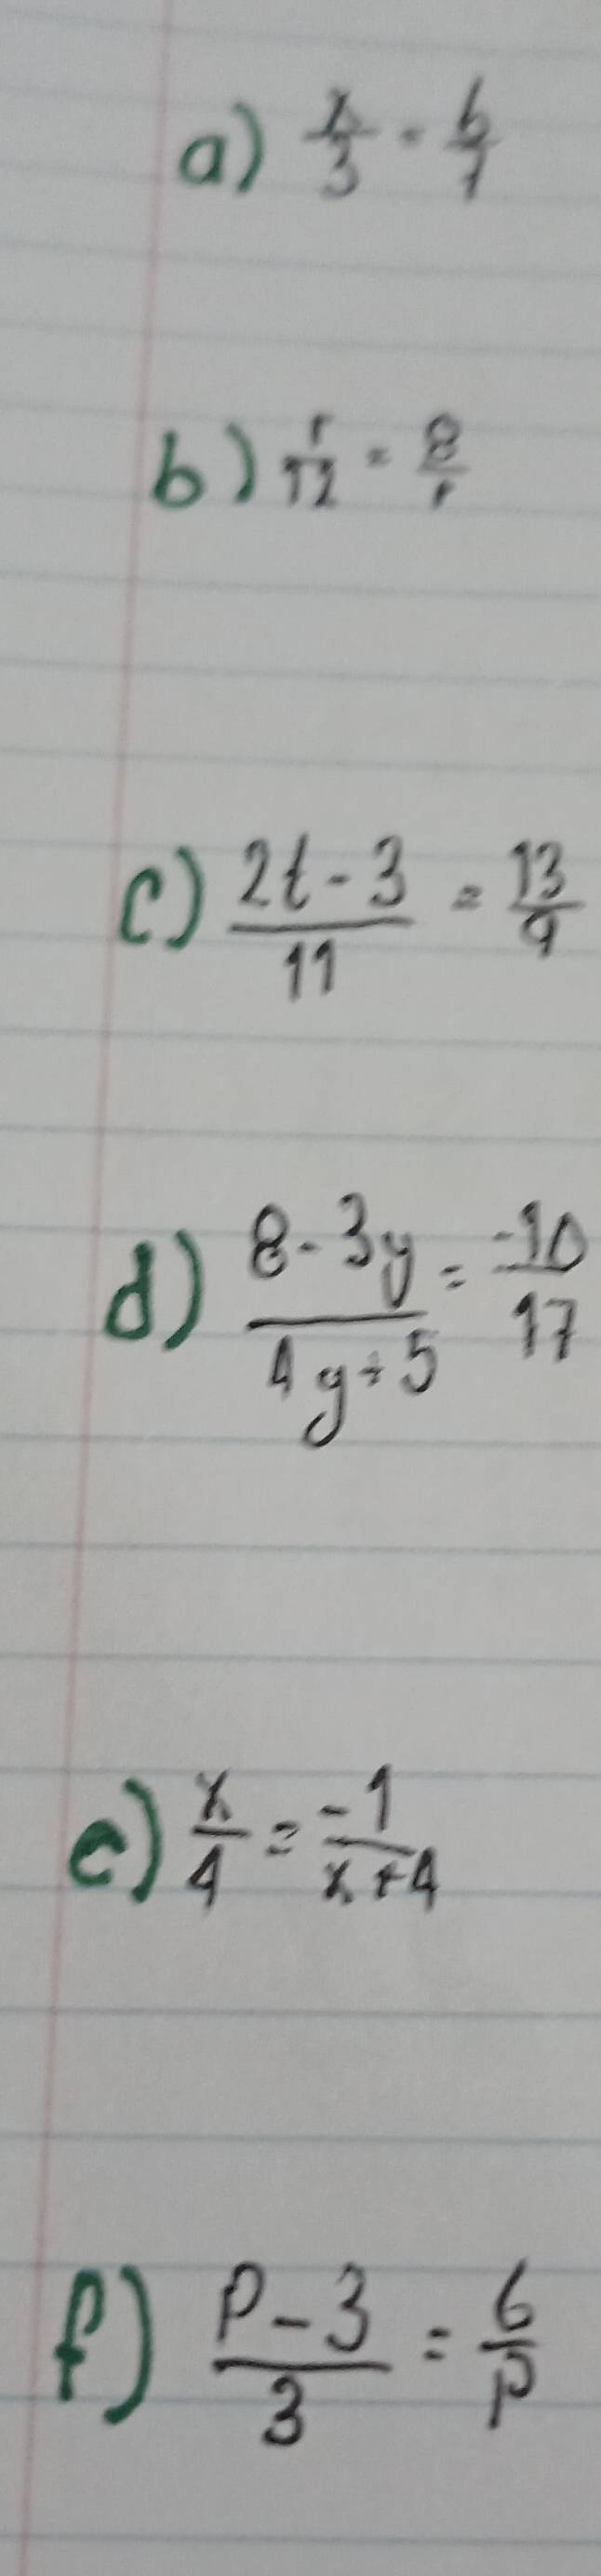 a) x/3 = 6/7
b) r/12 = 8/r
c) (2t - 3)/11 = 13/9
d) (8 - 3y)/(4y + 5) = -10/17
e) x/4 = -1/(x + 4)
f) (P - 3)/3 = 6/P